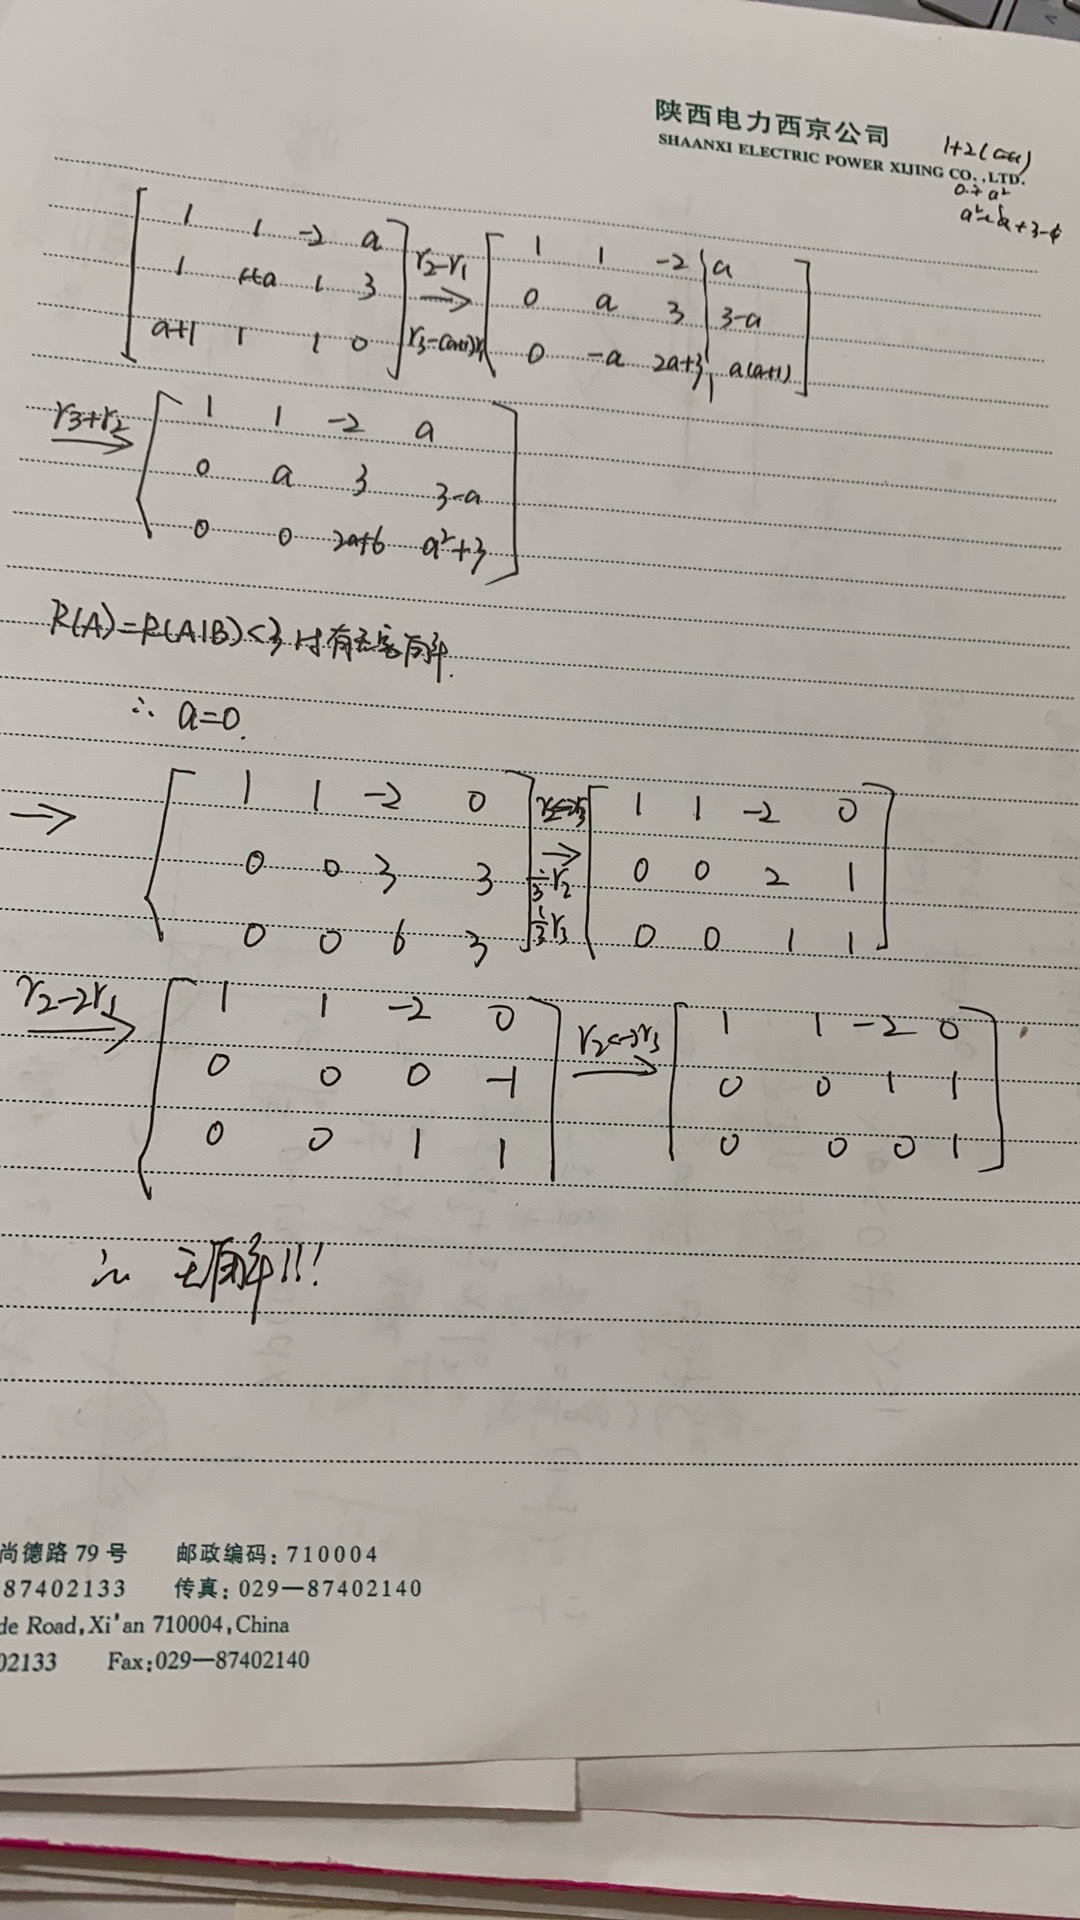 陕西电力西京公司
SHAANXI ELECTRIC POWER XIJING CO.,LTD.
1+2(a+1)
1 1 -2 a
1 1+a 1 3
a+1 1 1 0
r2-r1
r3-(a+1)r1
1 1 -2 a
0 a 3 3-a
0 -a 2a+3 a(a+1)
r3+r2
1 1 -2 a
0 a 3 3-a
0 0 2a+6 a²+3
R(A)=R(A|B)<3时有无穷向解.
∴ a=0.
→
1 1 -2 0
0 0 3 3
0 0 6 3
r2↔r3
1/3r2
1/3r3
1 1 -2 0
0 0 2 1
0 0 1 1
r2-2r1
1 1 -2 0
0 0 0 -1
0 0 1 1
r2↔r3
1 1 -2 0
0 0 1 1
0 0 0 1
∴ 无解!!!
尚德路79号 邮政编码：710004
87402133 传真：029—87402140
de Road,Xi'an 710004,China
02133 Fax:029—87402140